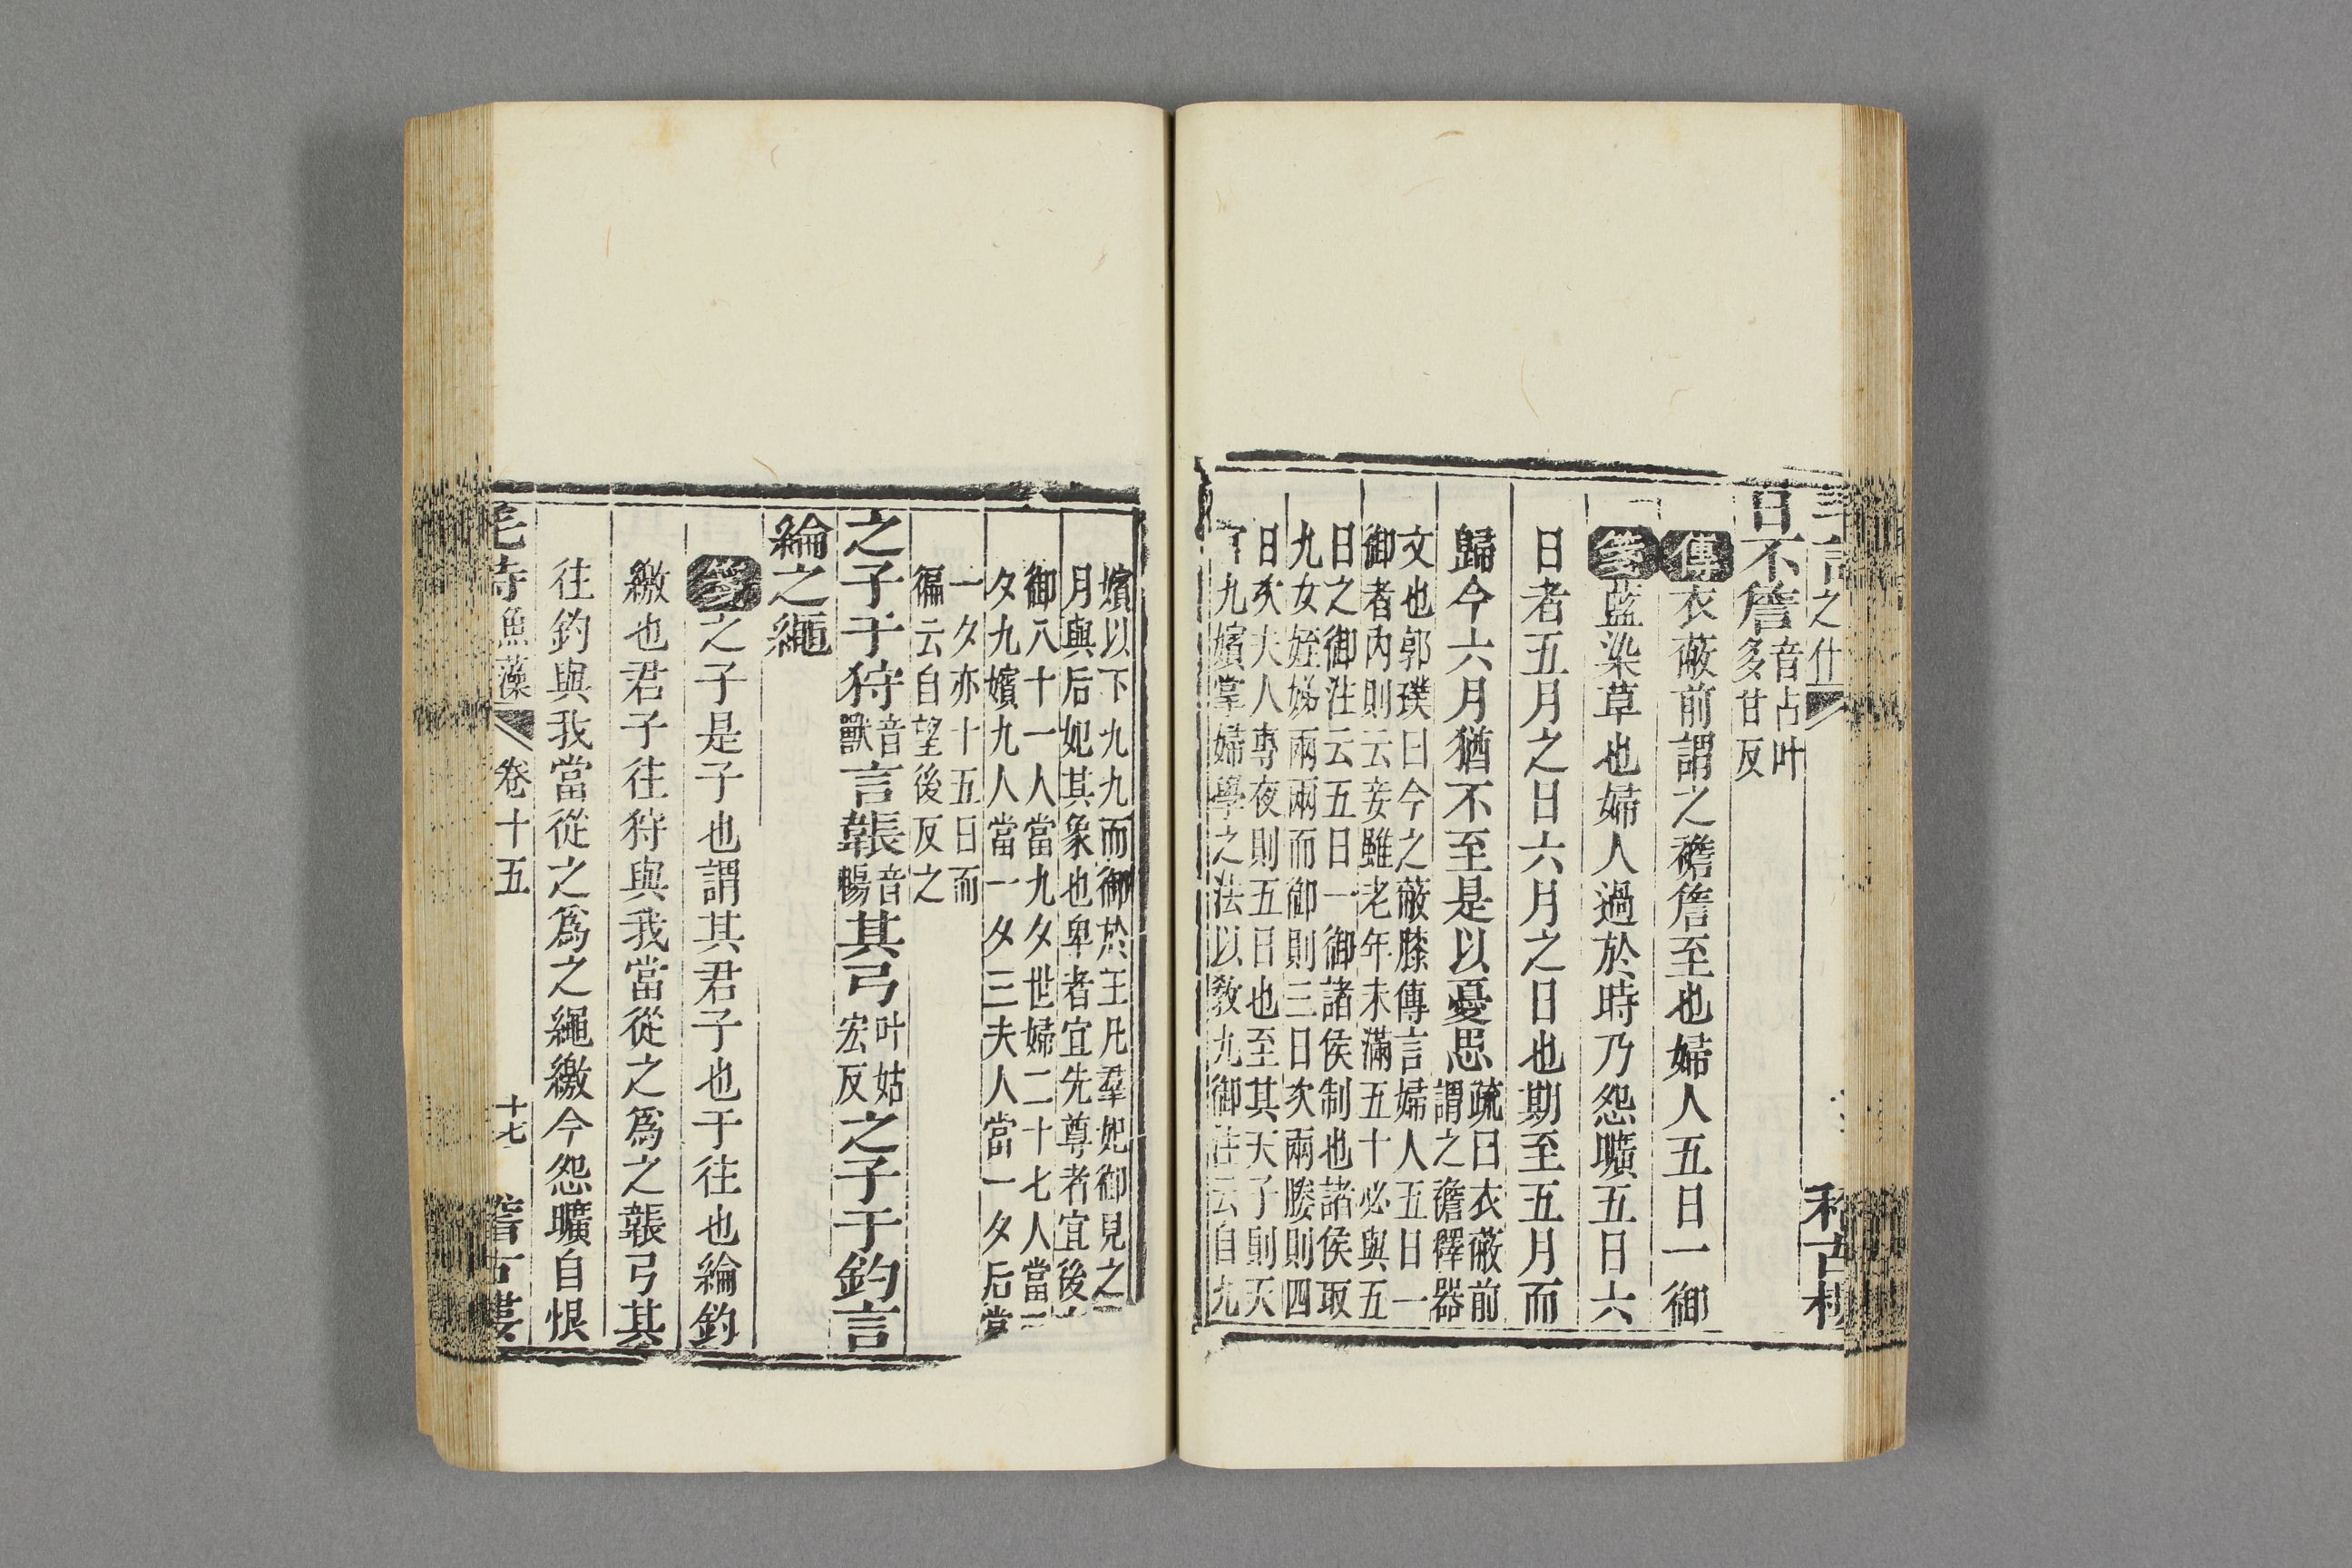 之什
日不詹音占叶
多甘反
傳衣蔽前謂之襜詹至也婦人五日一御
箋藍染草也婦人過於時乃怨曠五日六
日者五月之日六月之日也期至五月而
歸今六月猶不至是以憂思疏曰衣蔽前
謂之襜釋器
文也郭璞曰今之蔽膝傳言婦人五日一
御者內則云妾雖老年未滿五十必與五
日之御注云五日一御諸侯制也諸侯取
九女姪娣兩兩而御則三日次兩媵則四
日次夫人專夜則五日也至其天子則天
官九嬪掌婦學之法以敎九御注云自九
嬪以下九九而御於王凡羣妃御見之
月與后妃其象也卑者宜先尊者宜後
御八十一人當九夕世婦二十七人當三
夕九嬪九人當一夕三夫人當一夕后當
一夕亦十五日而
徧云自望後反之
之子于狩音
獸言韔音
暢其弓叶姑
宏反之子于釣言
綸之繩
箋之子是子也謂其君子也于往也綸釣
繳也君子往狩與我當從之爲之韔弓其
往釣與我當從之爲之繩繳今怨曠自恨
毛詩魚藻 卷十五 十七 稽古樓